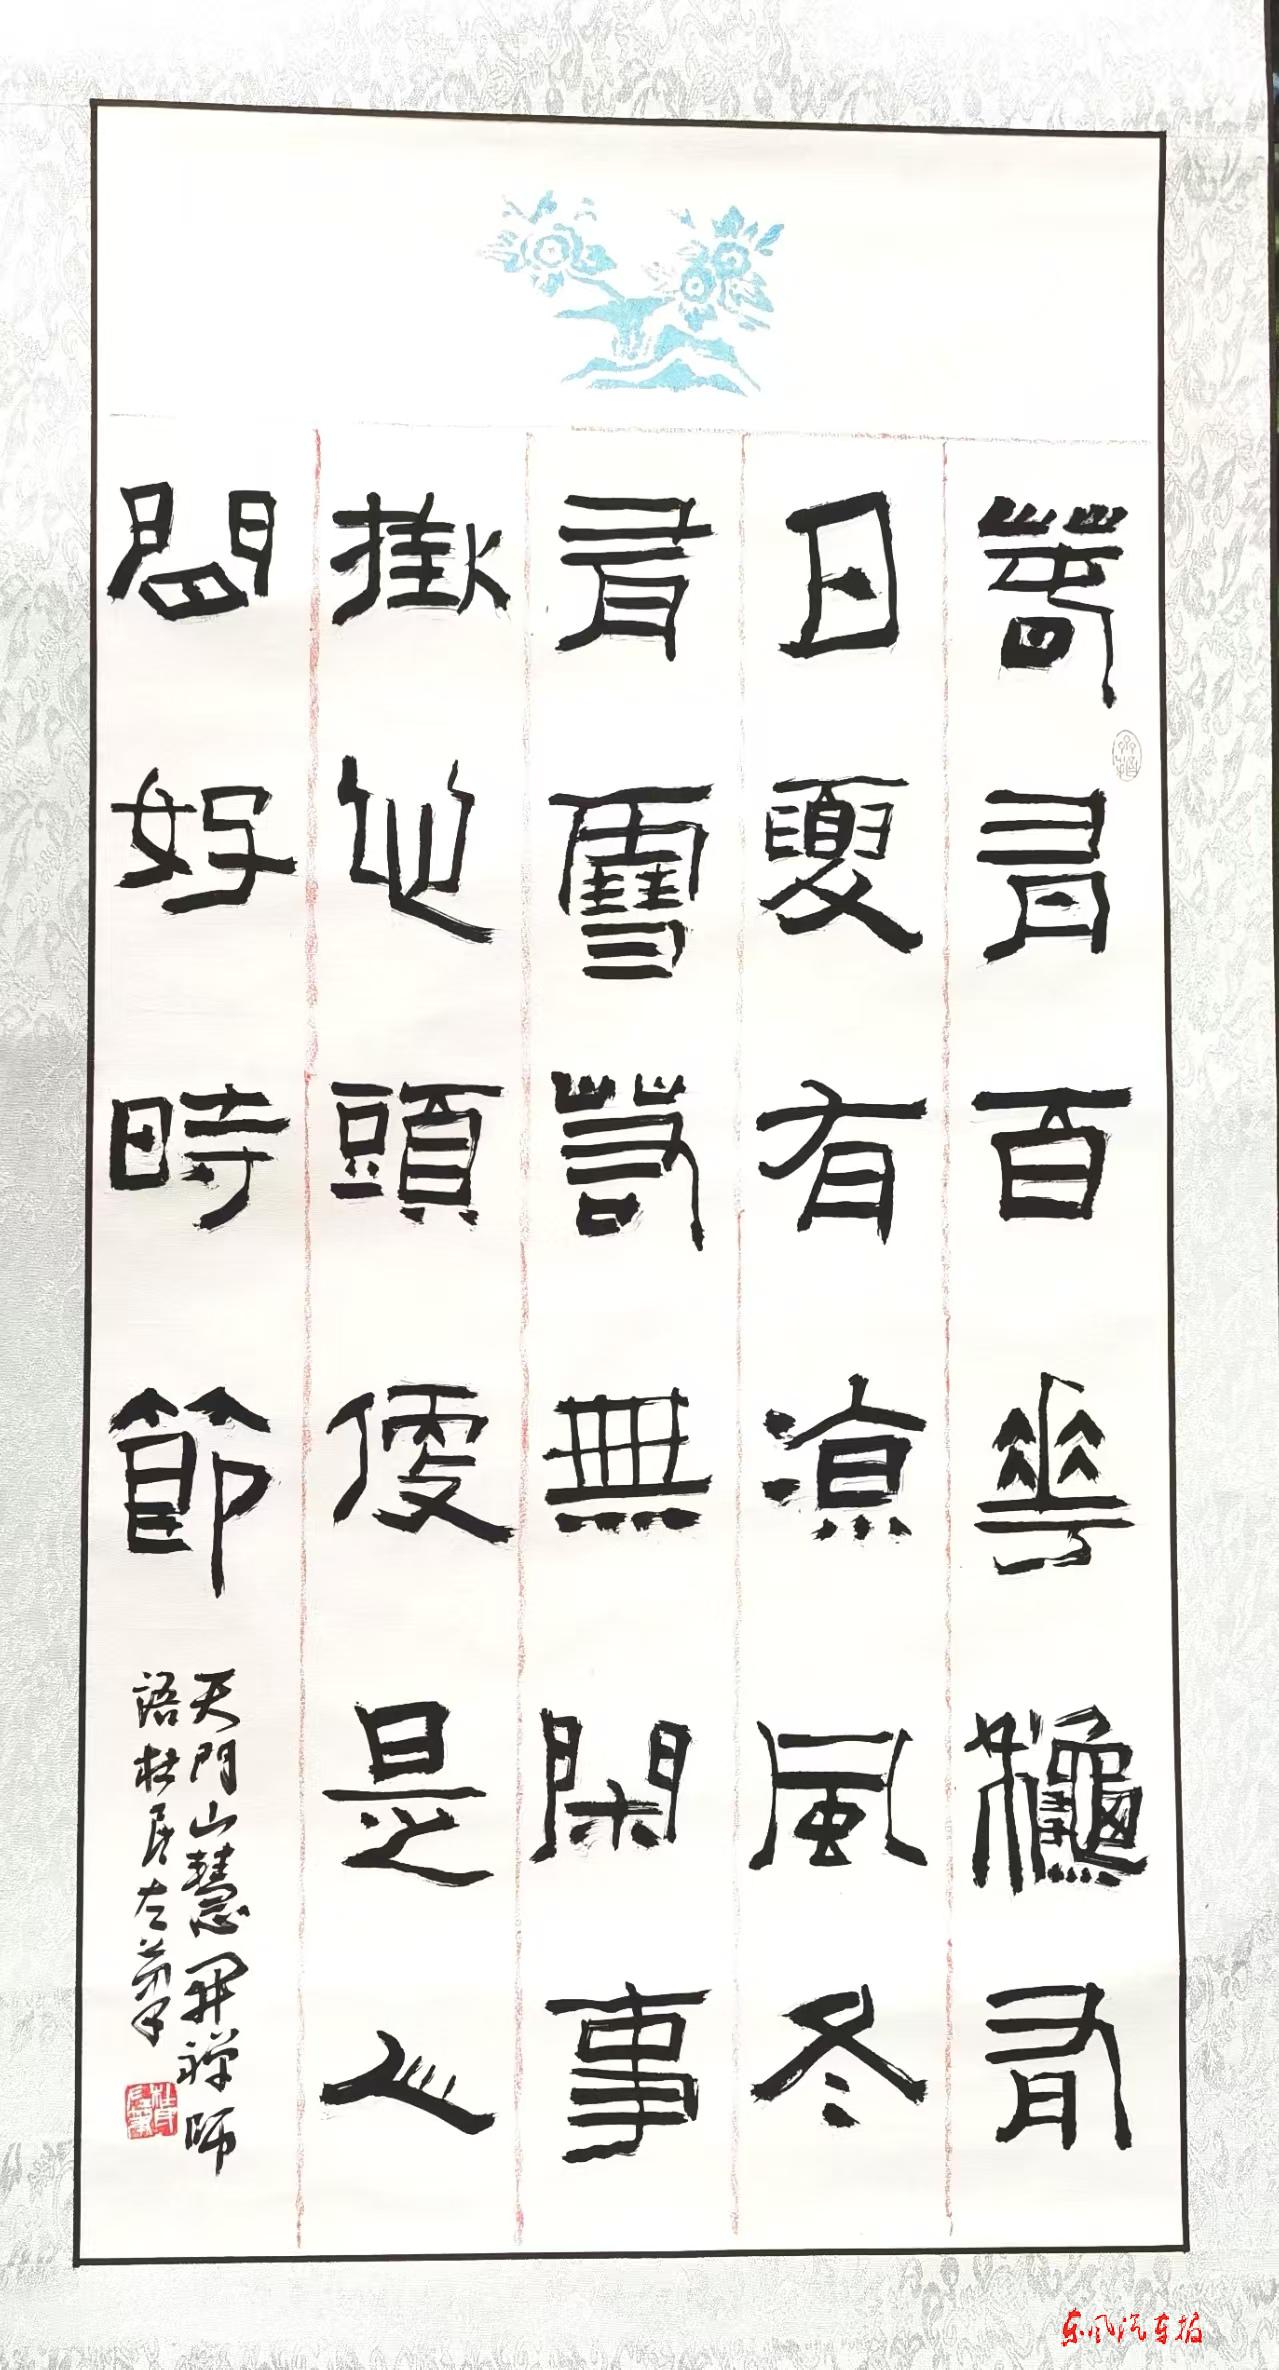 春有百花龝有
月夏有凉風冬
有雪若無閑事
掛心頭便是人
間好時節
天門山慧開禪師
語杜居左筆
东风汽车报